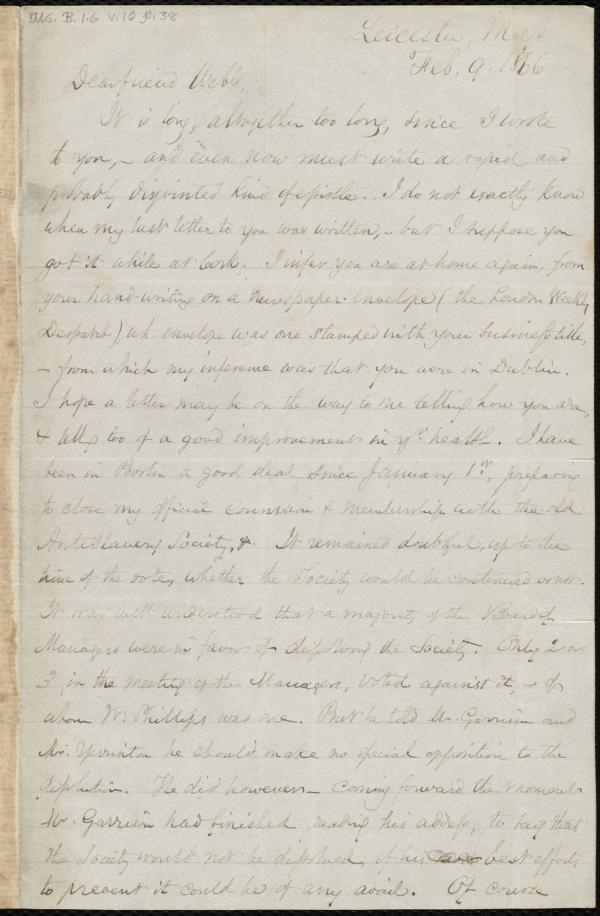 Ms. B. 1.6 v. 10 p. 38
Leicester, Mass.
Feb. 9. 1866
Dear friend Webb,
It is long, altogether too long, since I wrote
to you, - and even now must write a rapid and
probably disjointed kind of epistle. I do not exactly know
when my last letter to you was written, - but I suppose you
got it while at Cork. I infer you are at home again, from
your hand-writing on a newspaper-envelope (the London Weekly
Despatch), wh. envelope was one stamped with your business title,
- from which my inference was that you were in Dublin.
I hope a letter may be on the way to me telling how you are,
& tellg too of a good improvement in yr. health. I have
been in Boston a good deal since January 1st, preparing
to close my official Connexion & membership with the old
AntiSlavery Society, &. It remained doubtful, up to the
time of the vote, whether the Society would be continued or not.
It was well understood that a majority of the Board of
Managers were in favor of dissolving the Society. Only 2 or
3, in the meeting of the Managers, voted against it, - of
whom W. Phillips was one. But he told Mr. Garrison and
Mr. Yerrinton he should make no special opposition to the
dissolution. He did however - coming forward the moment
Mr. Garrison had finished reading his address, to say that
the Society would not be dissolved, if his best efforts
to prevent it could be of any avail. Of course